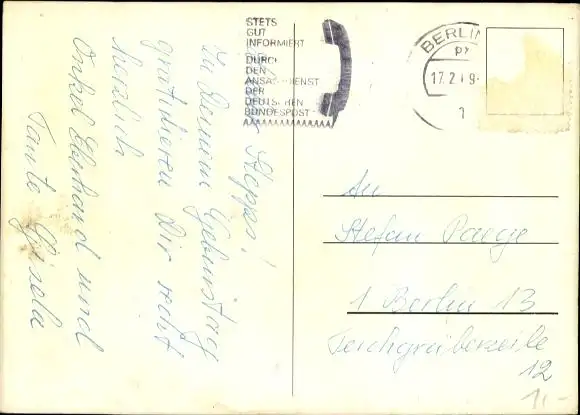 STETS
GUT
INFORMIERT
DURCH
DEN
ANSAGEDIENST
DER
DEUTSCHEN
BUNDESPOST
BERLIN
17.2.
1
Steppi!
Zu Deinem Geburtstag
gratulieren Dir recht
herzlich
Onkel Eberhard und
Tante Gisela
An
Stefan
1 Berlin 13
Teichgräberzeile
12
1,-